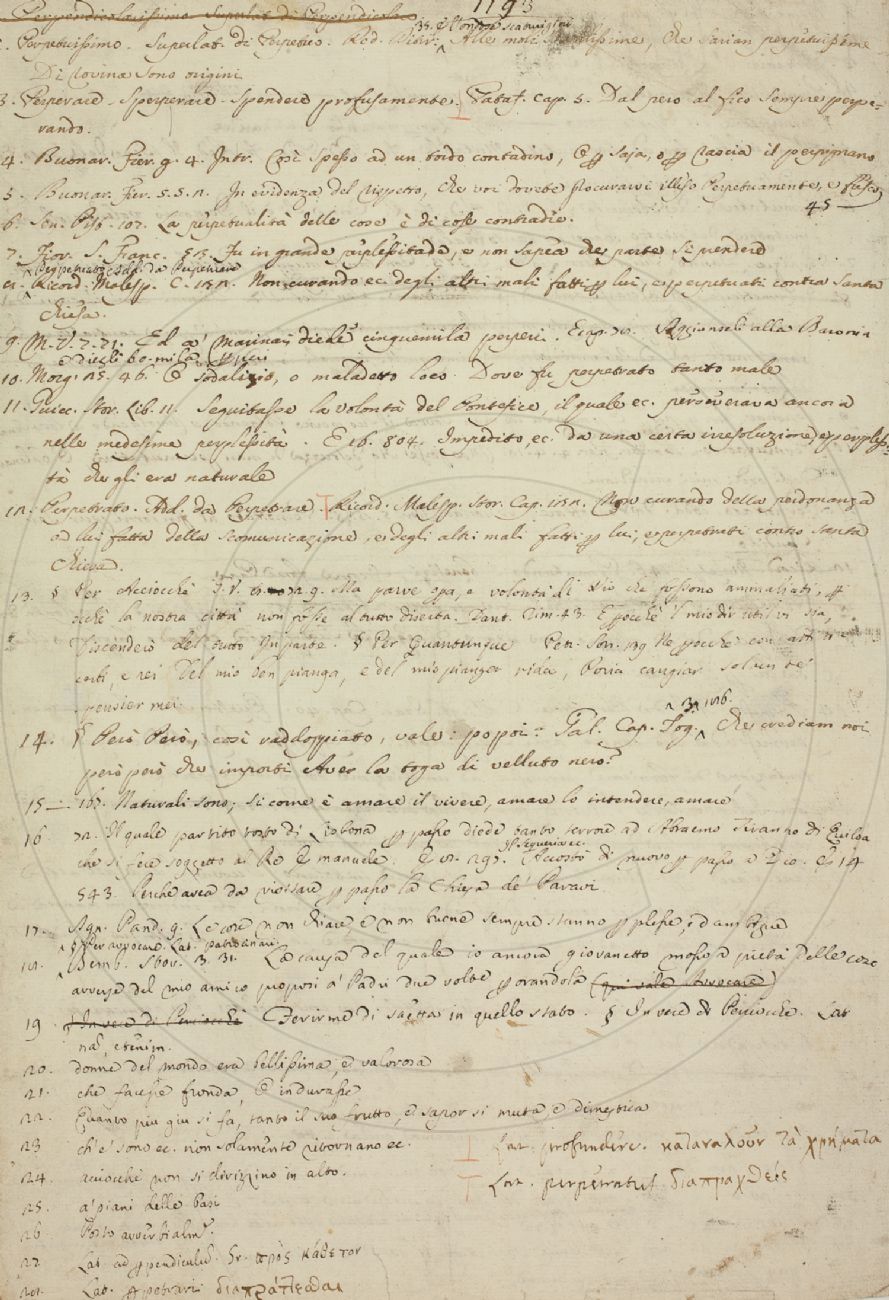 1193
Perpendicolarissimo Superlat. di Perpendicolare
35. è Bontà
1. Perpetuissimo. Superlat. di Perpetuo. Red. Alle molt, che sarian perpetuissime
Di rovina sono origini
3. Perperare Sperperare Spendere profusamente. Pataf. Cap. 5. Dal pero al fico sempre perpe-
rando.
4. Buonar. Fier. g. 4. Intr. Così spesso ad un tordo contadino, E saja, o rascia il perpignano
5. Buonar. Fier. 5. 5. 2. In evidenza del rispetto, che voi dovete procurarvi illeso Perpetuamente, e
45
6. Sen. Pist. 107. La perpetualità delle cose è di cose contradie.
7. Fior. S. Franc. 53. Fu in grande perplessitade, e non sapea che parte si prendere
Perpetuato Add. da Perpetuare
8. Ricord. Malesp. C. 152. Non curando ec. degli altri mali fatti p lui, e perpetuati contra Santa
Chiesa.
9. M. V. 7. 71. Ed a' Marinari diede cinquemila perperi. E cap. 72. Aggiunseli alla Baronia
e diegli 60. mila perperi
10. Morg. 25. 46. O sodalizio, o maladetto loco Dove fu perpetrato tanto male
11. Guicc. Stor. Lib. 11. Seguitasse la volontà del Pontefice, il quale ec. perseverava ancora
nelle medesime perplessità. E 16. 804. Impedito, ec. da una certa irresoluzione, e perplessi-
tà che gli era naturale
12. Perpetrato. Add. da Perpetrare. Ricord. Malesp. Stor. Cap. 152. Non curando della perdonanza
a lui fatta della scomunicazione, e degli altri mali fatti p lui, e perpetrati contro santa
Chiesa.
13. § Per Acciocchè G. V. 9. Ma parve opa, e volontà di Dio che fossono ammaliati, p
ochè la nostra città non fosse al tutto diserta. Dant. Rim. 43. E perocchè 'l mio dir util vi sia,
Discenderò del tutto In parte. § Per Quantunque Petr. Son. 139 Ne perocchè con atti
certi, e rei Del mio ben pianga, e del mio pianger rida, Poria cangiar sol un de'
pensier mei
14. § Però Però, così raddoppiato, vale: po poi. Fal. Cap. Tog. 3. 186. Che crediam noi
però però che importi Aver la toga di velluto nero?
15 — 167. Naturali sono; si come è amare il vivere, amare lo intendere, amare
16 72. Il quale partito tosto di Lisbona p passo diede tanto terrore ad Abraemo Tiranno di Quiloa
che si fece soggetto al Re Emanuele. E 291. Accostò di nuovo p passo a Dio. E 14
543. Perchè avea da visitare p passo la Chiesa de' Paravi.
17. Agn. Pand. 9. Le cose non chiare e non buone sempre stanno p plesse, ed ambigue
§ Per avvocare. Lat. patrocinari.
18. Bemb. Stor. 3. 31. La causa del quale io ancora giovanetto mosso a pietà delle cose
avverse del mio amico proposi a' Padri due volte p orandola (qui vale Avvocare)
19 In vece di Perciocchè Ferirme di saetta in quello stato. § In vece di Perciocchè. Lat
nā, etenim.
20. donne del mondo era bellissima, ed valorosa
21. che facesse fronda, O indurasse
22. Quanto piu giu si fa, tanto il suo frutto, e sapor si muta e dimestica
23 ch'e' sono ec. non solamente ritornano ec.
24. acciocchè non si dirizzino in alto.
25. a' piani delle Basi
26 Posto avverbialmt.
27. Lat. ad ppendiculū. Gr. πρὸς κάθετον
28. Lat. ppetrari. διαπράττεσθαι
Lat. profundere. καταναλοῦν τὰ χρήματα
Lat. perpetratus. διαπραχθείς